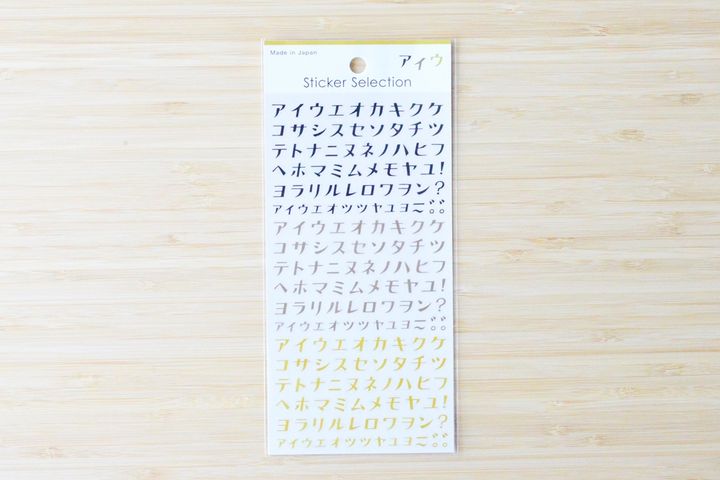 Made in Japan
アイウ
Sticker Selection
アイウエオカキクケ
コサシスセソタチツ
テトナニヌネノハヒフ
ヘホマミムメモヤユ!
ヨラリルレロワヲン?
アイウエオツツヤユヨー〜゛゛。。
アイウエオカキクケ
コサシスセソタチツ
テトナニヌネノハヒフ
ヘホマミムメモヤユ!
ヨラリルレロワヲン?
アイウエオツツヤユヨー〜゛゛。。
アイウエオカキクケ
コサシスセソタチツ
テトナニヌネノハヒフ
ヘホマミムメモヤユ!
ヨラリルレロワヲン?
アイウエオツツヤユヨー〜゛゛。。